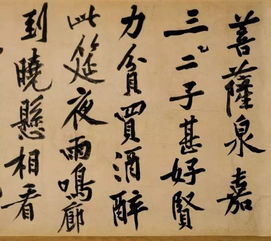 菩薩泉嘉
三二子甚好賢
力貧買酒醉
此筵夜雨鳴廊
到曉懸相看